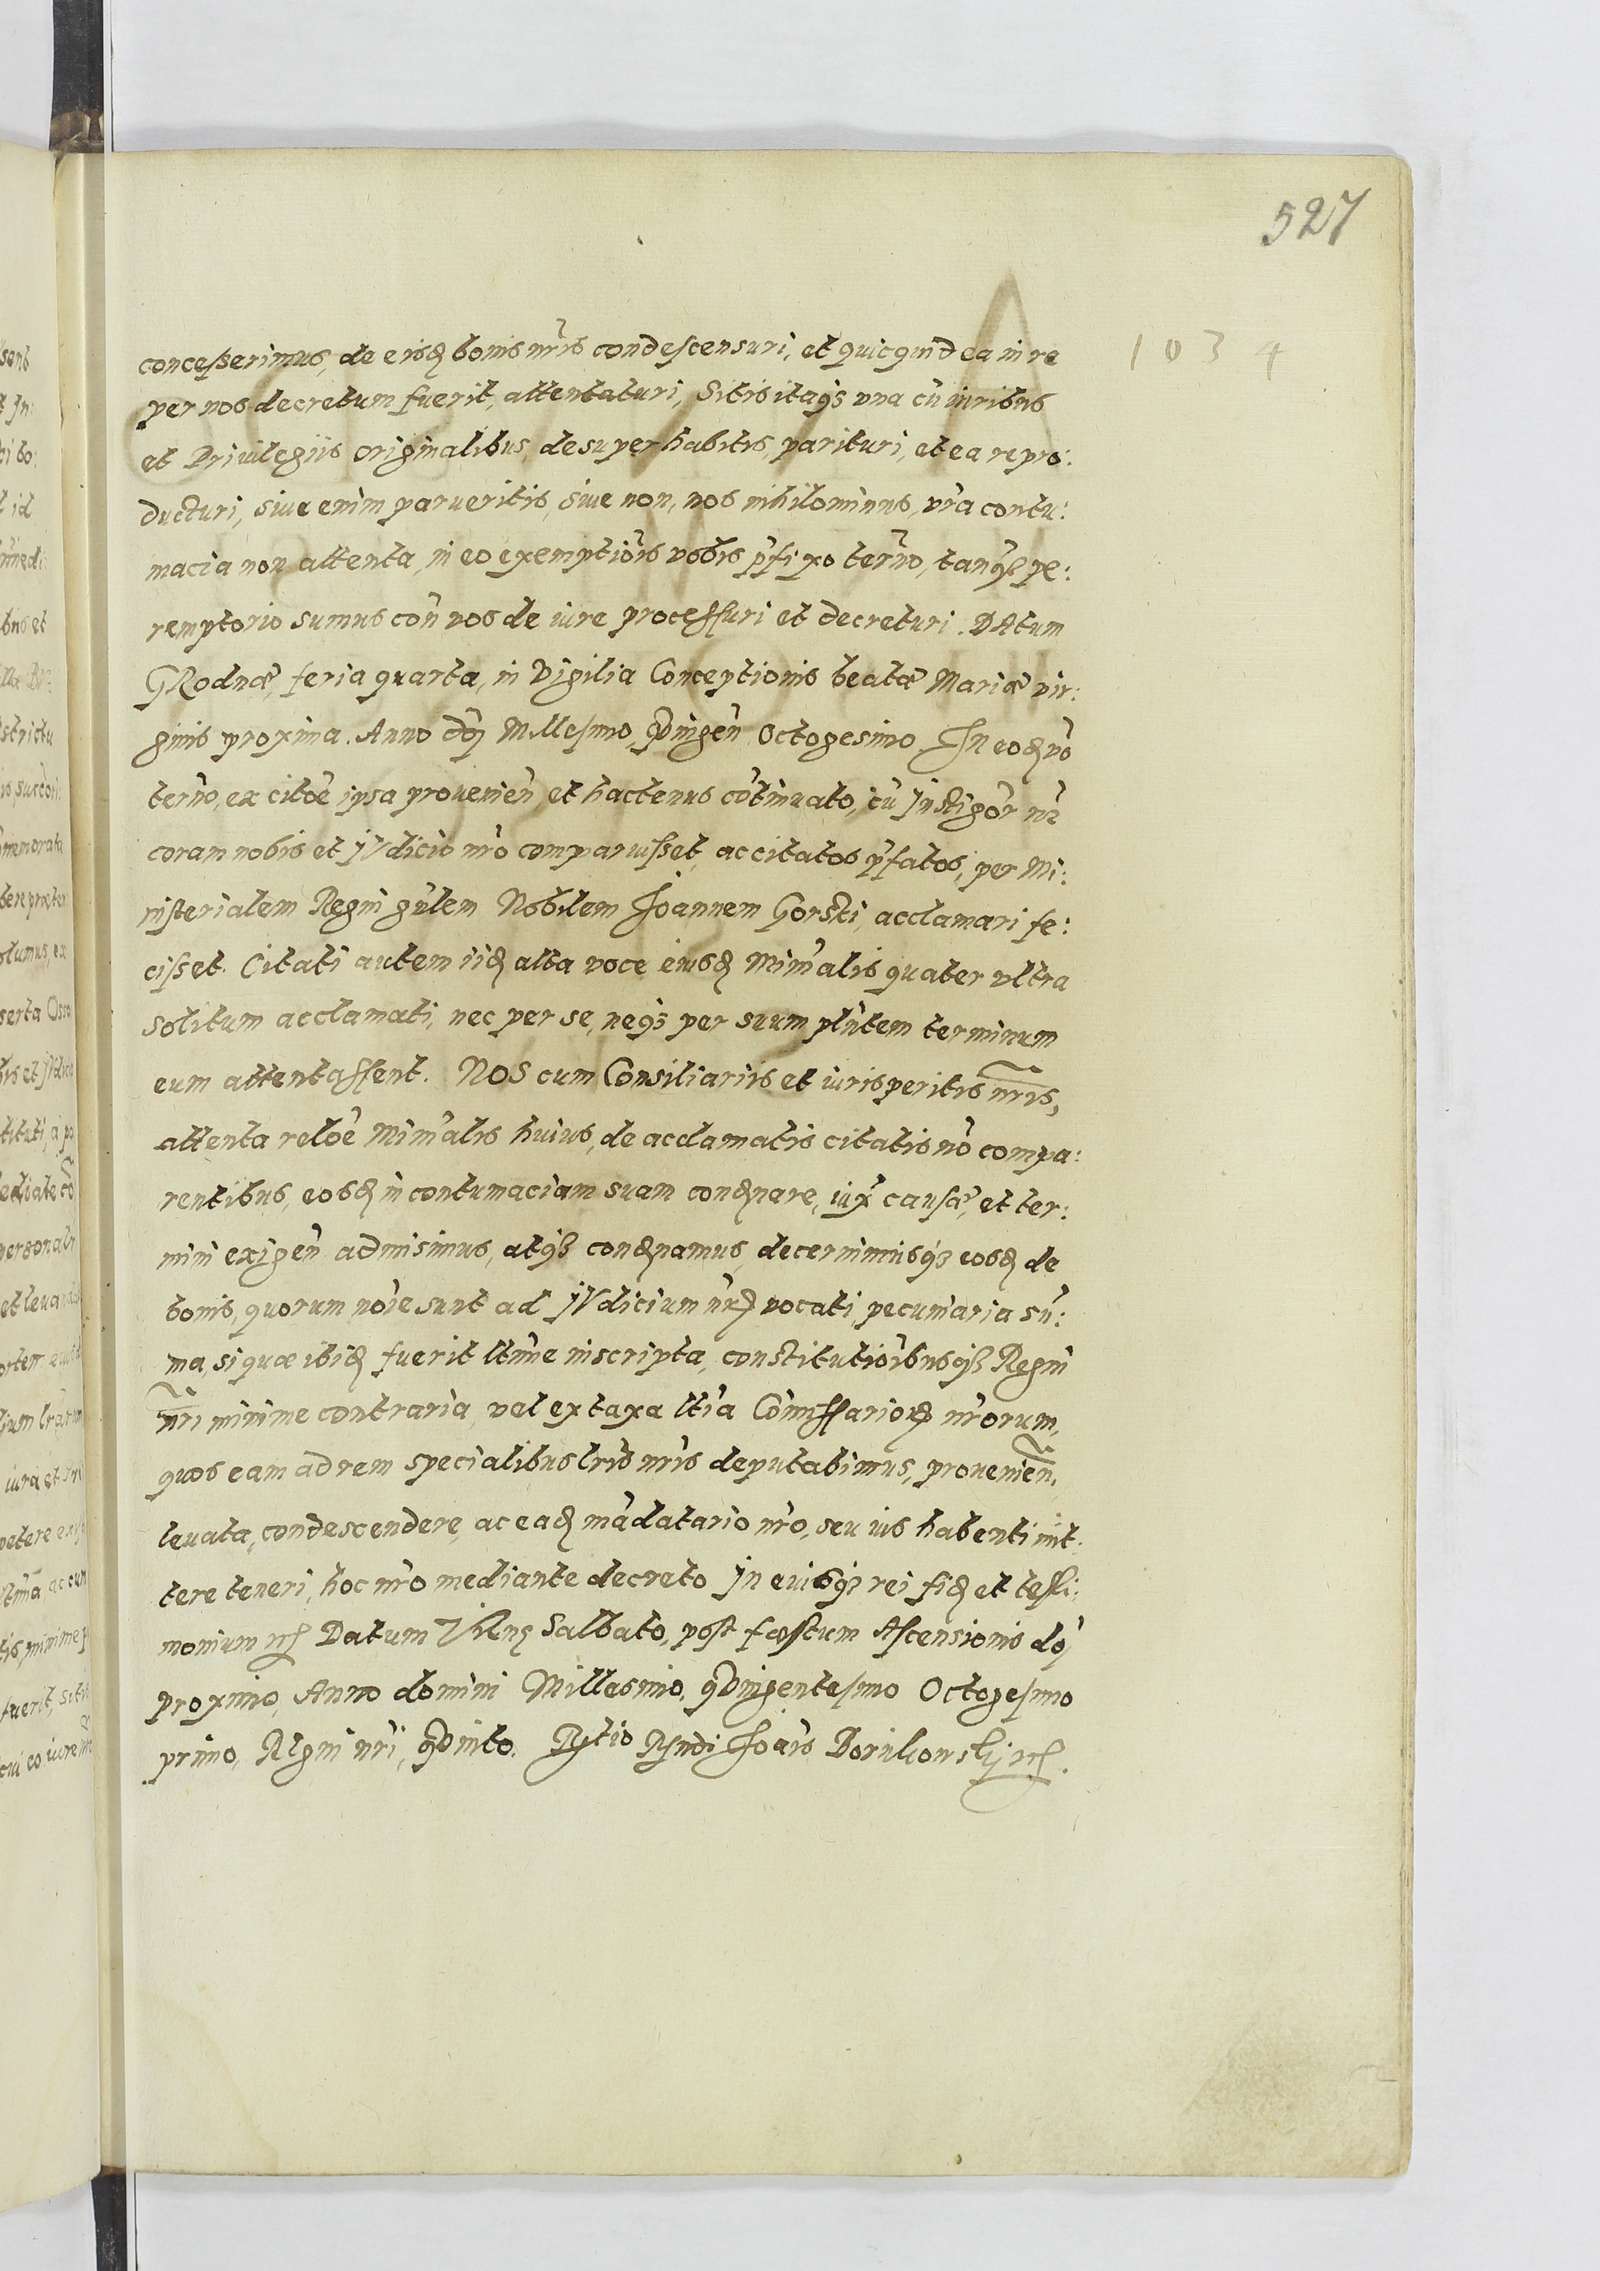 527
1034
concesserimus, de eisdꝫ bonis nr̃is condescensuri, et quicquid ea in re
per nos decretum fuerit, attentaturi, Sitis itaqꝫ vna cũ iuribus
et Priuilegiis originalibus, desuper habitis, parituri, et ea repro:
ducturi, siue enim parueritis, siue non, nos nihilominus, vr̃a contu:
macia non attenta, in eo exemptiõis vobis p̃fixo terño, tanqꝫ pe:
remptorio sumus coñ vos de iure processuri et decreturi. DAtum
GRodnæ, feria quarta, in Vigilia Conceptionis beatæ Mariæ vir:
ginis proxima. Anno dñj Millesimo, qVingeñ Octogesimo. In eodꝫ ṽo
terño, ex citõe ipsa prouenieñ et hactenus cõtinuato, cũ Instigõr nr̃
coram nobis et JVdicio nr̃o comparuisset, ac citatos p̃fatos, per Mi:
nisterialem Regni gñlem Nobilem Joannem Gorski, acclamari fe:
cisset. Citati autem iidꝫ alta voce eiusdꝫ Min̄alis quater vltra
solitum acclamati, nec per se, neqꝫ per suum pl̃ntem terminum
eum attentassent. NOS cum Consiliariis et iurisperitis nr̃is,
attenta relõe Min̄alis huius, de acclamatis citatis nõ compa:
rentibus, eosdꝫ in contumaciam suam condꝫnare, iux̃ causæ, et ter:
mini exigeñ admisimus, atqꝫ condꝫnamus, decernimusqꝫ eosdꝫ de
bonis, quorum noĩe sunt ad JVdicium nr̃ꝫ vocati, pecuniaria sũ:
ma, si quæ ibidꝫ fuerit ltĩme inscripta, constitutiõibusqꝫ Regni
nr̃i minime contraria, vel ex taxa ltĩa Cõmissarioꝝ nr̃orum,
quos eam ad rem specialibus lr̃is nr̃is deputabimus, prouenieñ,
leuata, condescendere, ac eadꝫ mãdatario nr̃o, seu ius habenti mit:
tere teneri, hoc nr̃o mediante decreto In cuiusqꝫ rei fidꝫ et testi:
monium etc̃ Datum Vilnę Sabbato, post festum Ascensionis dñj
proximo, Anno domini Millesimo, qVingentesimo Octogesimo
primo, Regni nr̃i, qVinto. R̃tio R̃ndi Joãis Borukowskj etc̃.